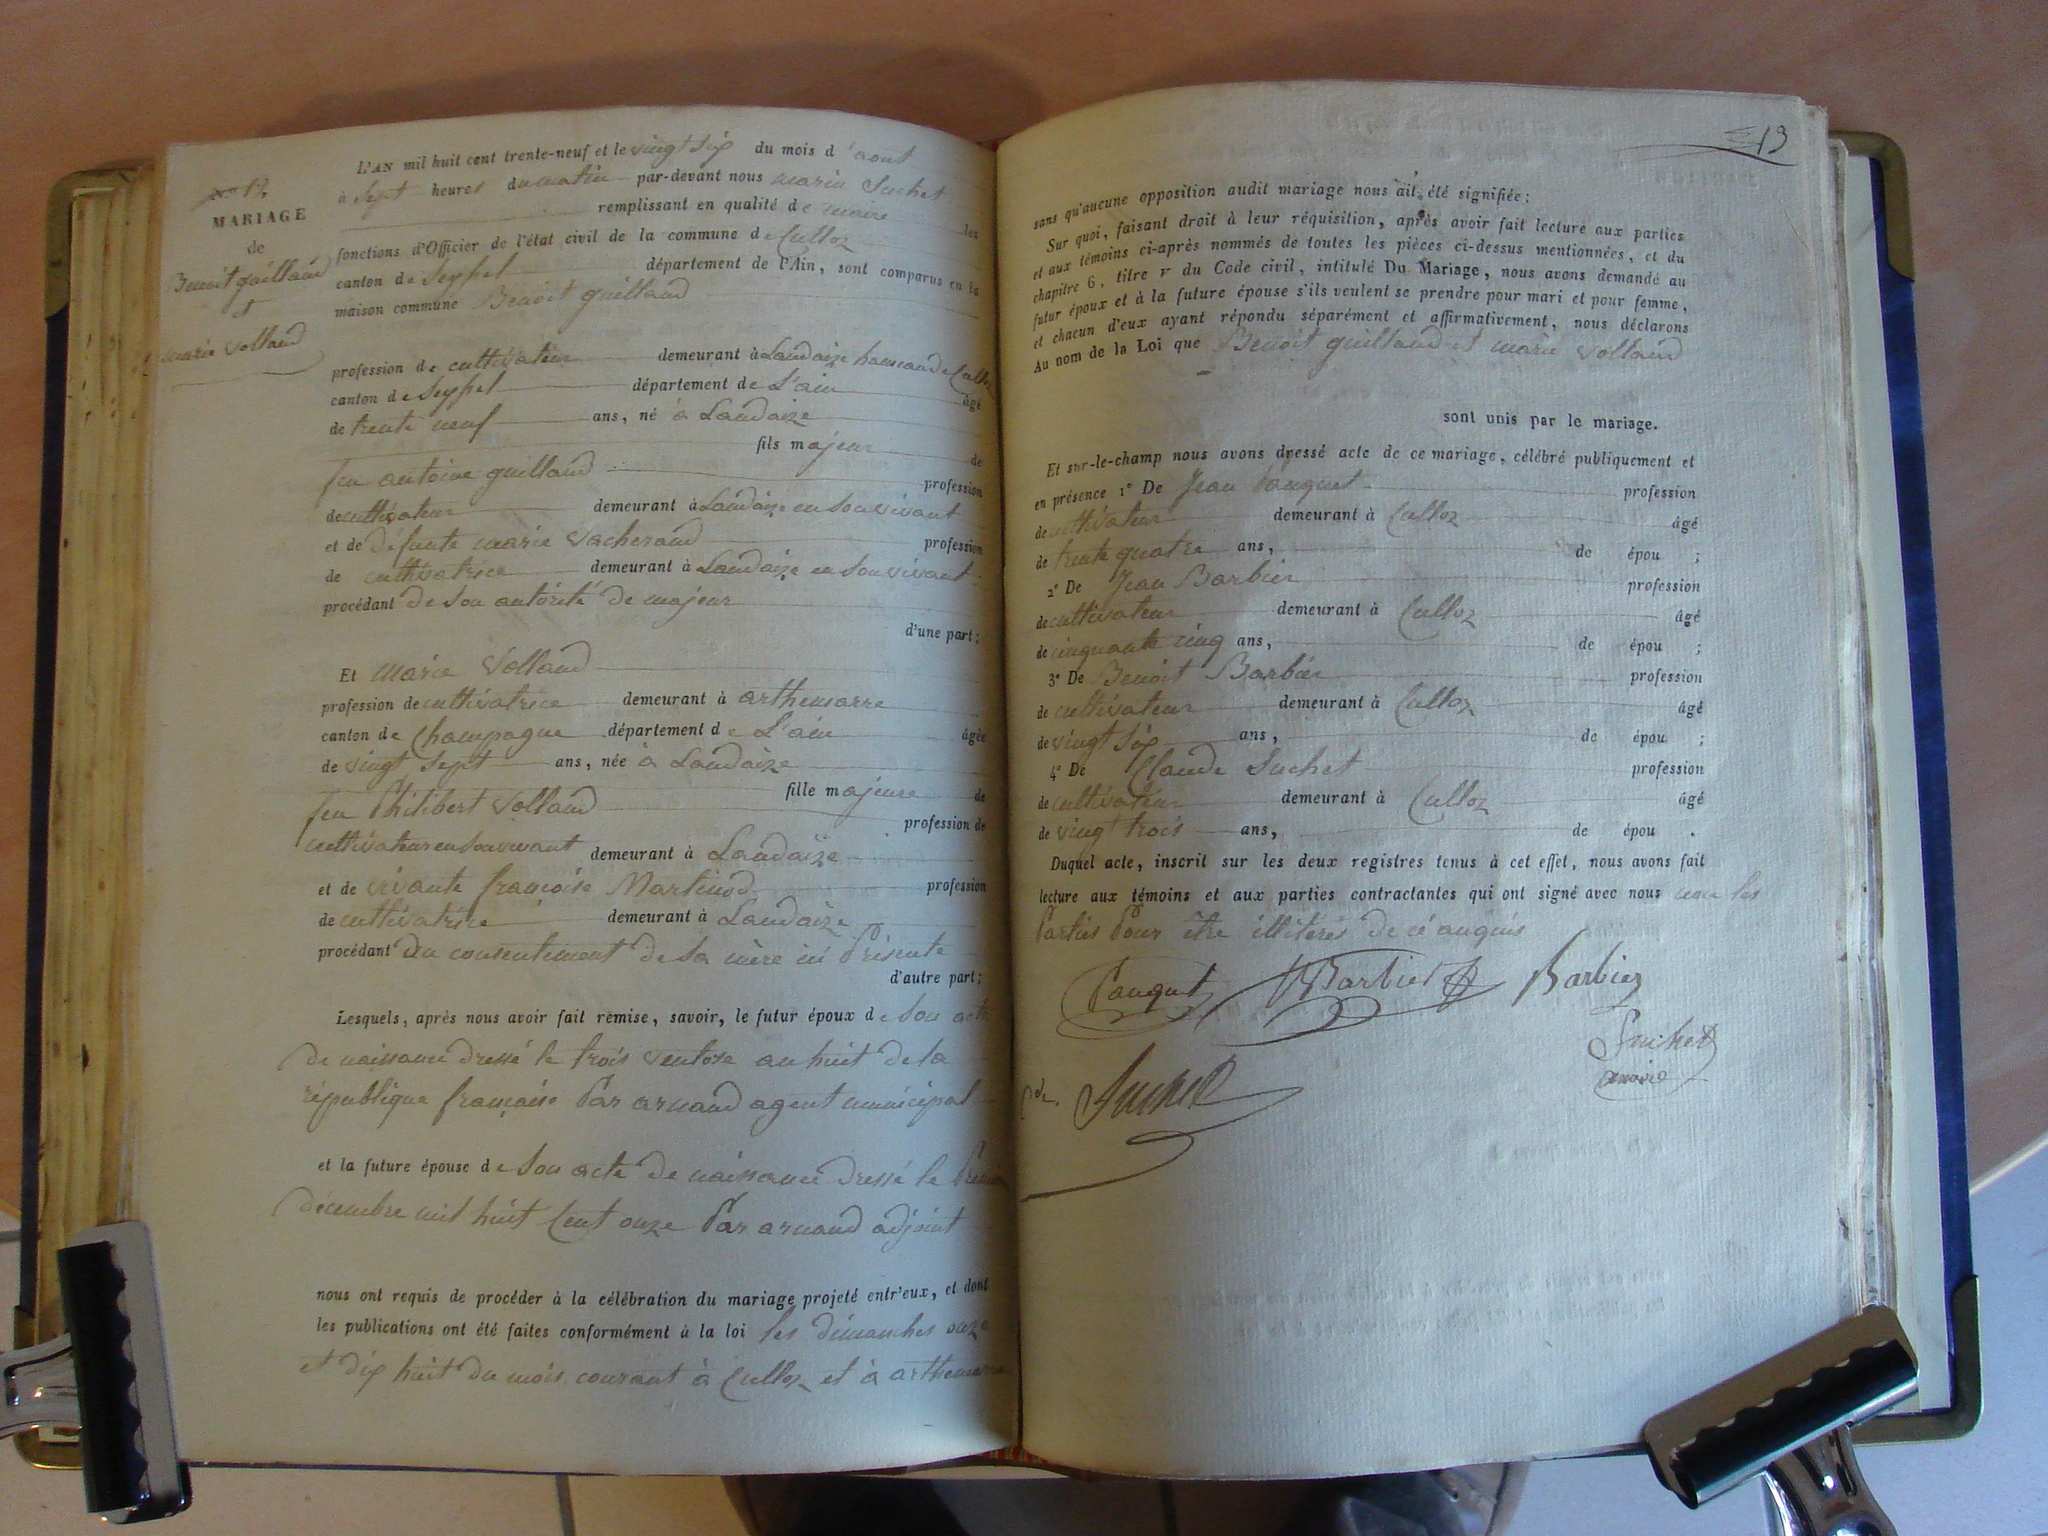 N° 12.
MARIAGE
de
Benoit guilland
et
marie volland
L'AN mil huit cent trente-neuf et le vingt six du mois d'aout
à sept heures du matin par-devant nous marin Suchet
remplissant en qualité de maire les
fonctions d'Officier de l'état civil de la commune de Culloz
canton de Seyssel département de l'Ain, sont comparus en la
maison commune Benoit guilland
profession de cultivateur demeurant à Landaize hameau de Culloz
canton de Seyssel département de L'ain âgé
de trente neuf ans, né à Landaize
fils majeur de
feu antoine guilland profession
de cultivateur demeurant à Landaize en son vivant
et de défunte marie vacherand profession
de cultivatrice demeurant à Landaize en son vivant
procédant de son autorité de majeur
d'une part;
Et marie Volland
profession de cultivatrice demeurant à arthemarre
canton de Champagne département de L'ain âgée
de vingt sept ans, née à Landaize
fille majeure de
feu Philibert Volland profession de
cultivateur en son vivant demeurant à Landaize
et de vivante françoise Martinod profession
de cultivatrice demeurant à Landaize
procédant du consentement de sa mère ici Présente
d'autre part;
Lesquels, après nous avoir fait remise, savoir, le futur époux de son acte
de naissance dressé le trois ventose an huit de la
république française Par arnaud agent municipal
et la future épouse de son acte de naissance dressé le Premier
décembre mil huit Cent onze Par arnaud adjoint
nous ont requis de procéder à la célébration du mariage projeté entr'eux, et dont
les publications ont été faites conformément à la loi les dimanches onze
et dix huit du mois courant à Culloz et à arthemarre
13
sans qu'aucune opposition audit mariage nous ait été signifiée;
Sur quoi, faisant droit à leur réquisition, après avoir fait lecture aux parties
et aux témoins ci-après nommés de toutes les pièces ci-dessus mentionnées, et du
chapitre 6, titre v du Code civil, intitulé Du Mariage, nous avons demandé au
futur époux et à la future épouse s'ils veulent se prendre pour mari et pour femme,
et chacun d'eux ayant répondu séparément et affirmativement, nous déclarons
Au nom de la Loi que Benoit guilland et marie volland
sont unis par le mariage.
Et sur-le-champ nous avons dressé acte de ce mariage, célébré publiquement et
en présence 1° De Jean Pauguet profession
de cultivateur demeurant à Culloz âgé
de trente quatre ans, de épou ;
2° De Jean Barbier profession
de cultivateur demeurant à Culloz âgé
de cinquante cinq ans, de épou ;
3° De Benoit Barbier profession
de cultivateur demeurant à Culloz âgé
de vingt six ans, de épou ;
4° De Claude Suchet profession
de cultivateur demeurant à Culloz âgé
de vingt trois ans, de épou .
Duquel acte, inscrit sur les deux registres tenus à cet effet, nous avons fait
lecture aux témoins et aux parties contractantes qui ont signé avec nous non les
Parties Pour être illiterés de ce anquis
Pauguet Barbier Barbier
Suchet
maire
Suchet